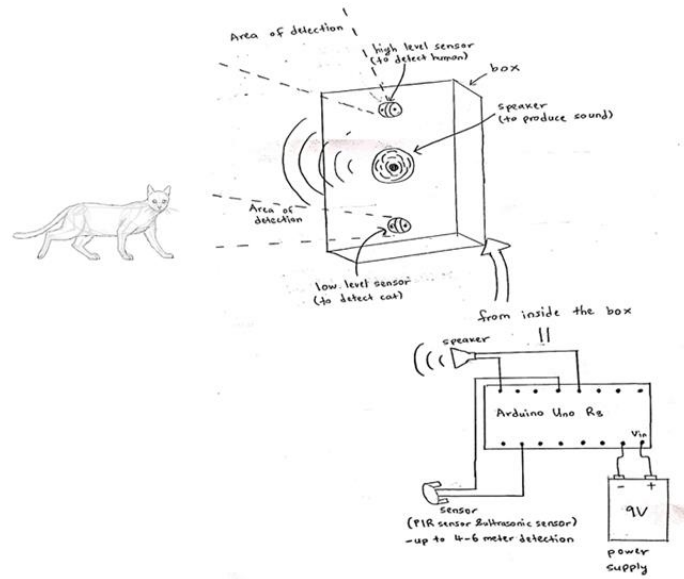 Area of detection
high level sensor
(to detect human)
box
speaker
(to produce sound)
Area of
detection
low level sensor
(to detect cat)
from inside the box
speaker
Arduino Uno R3
Vin
- +
9V
sensor
(PIR sensor & ultrasonic sensor)
- up to 4-6 meter detection
power
supply